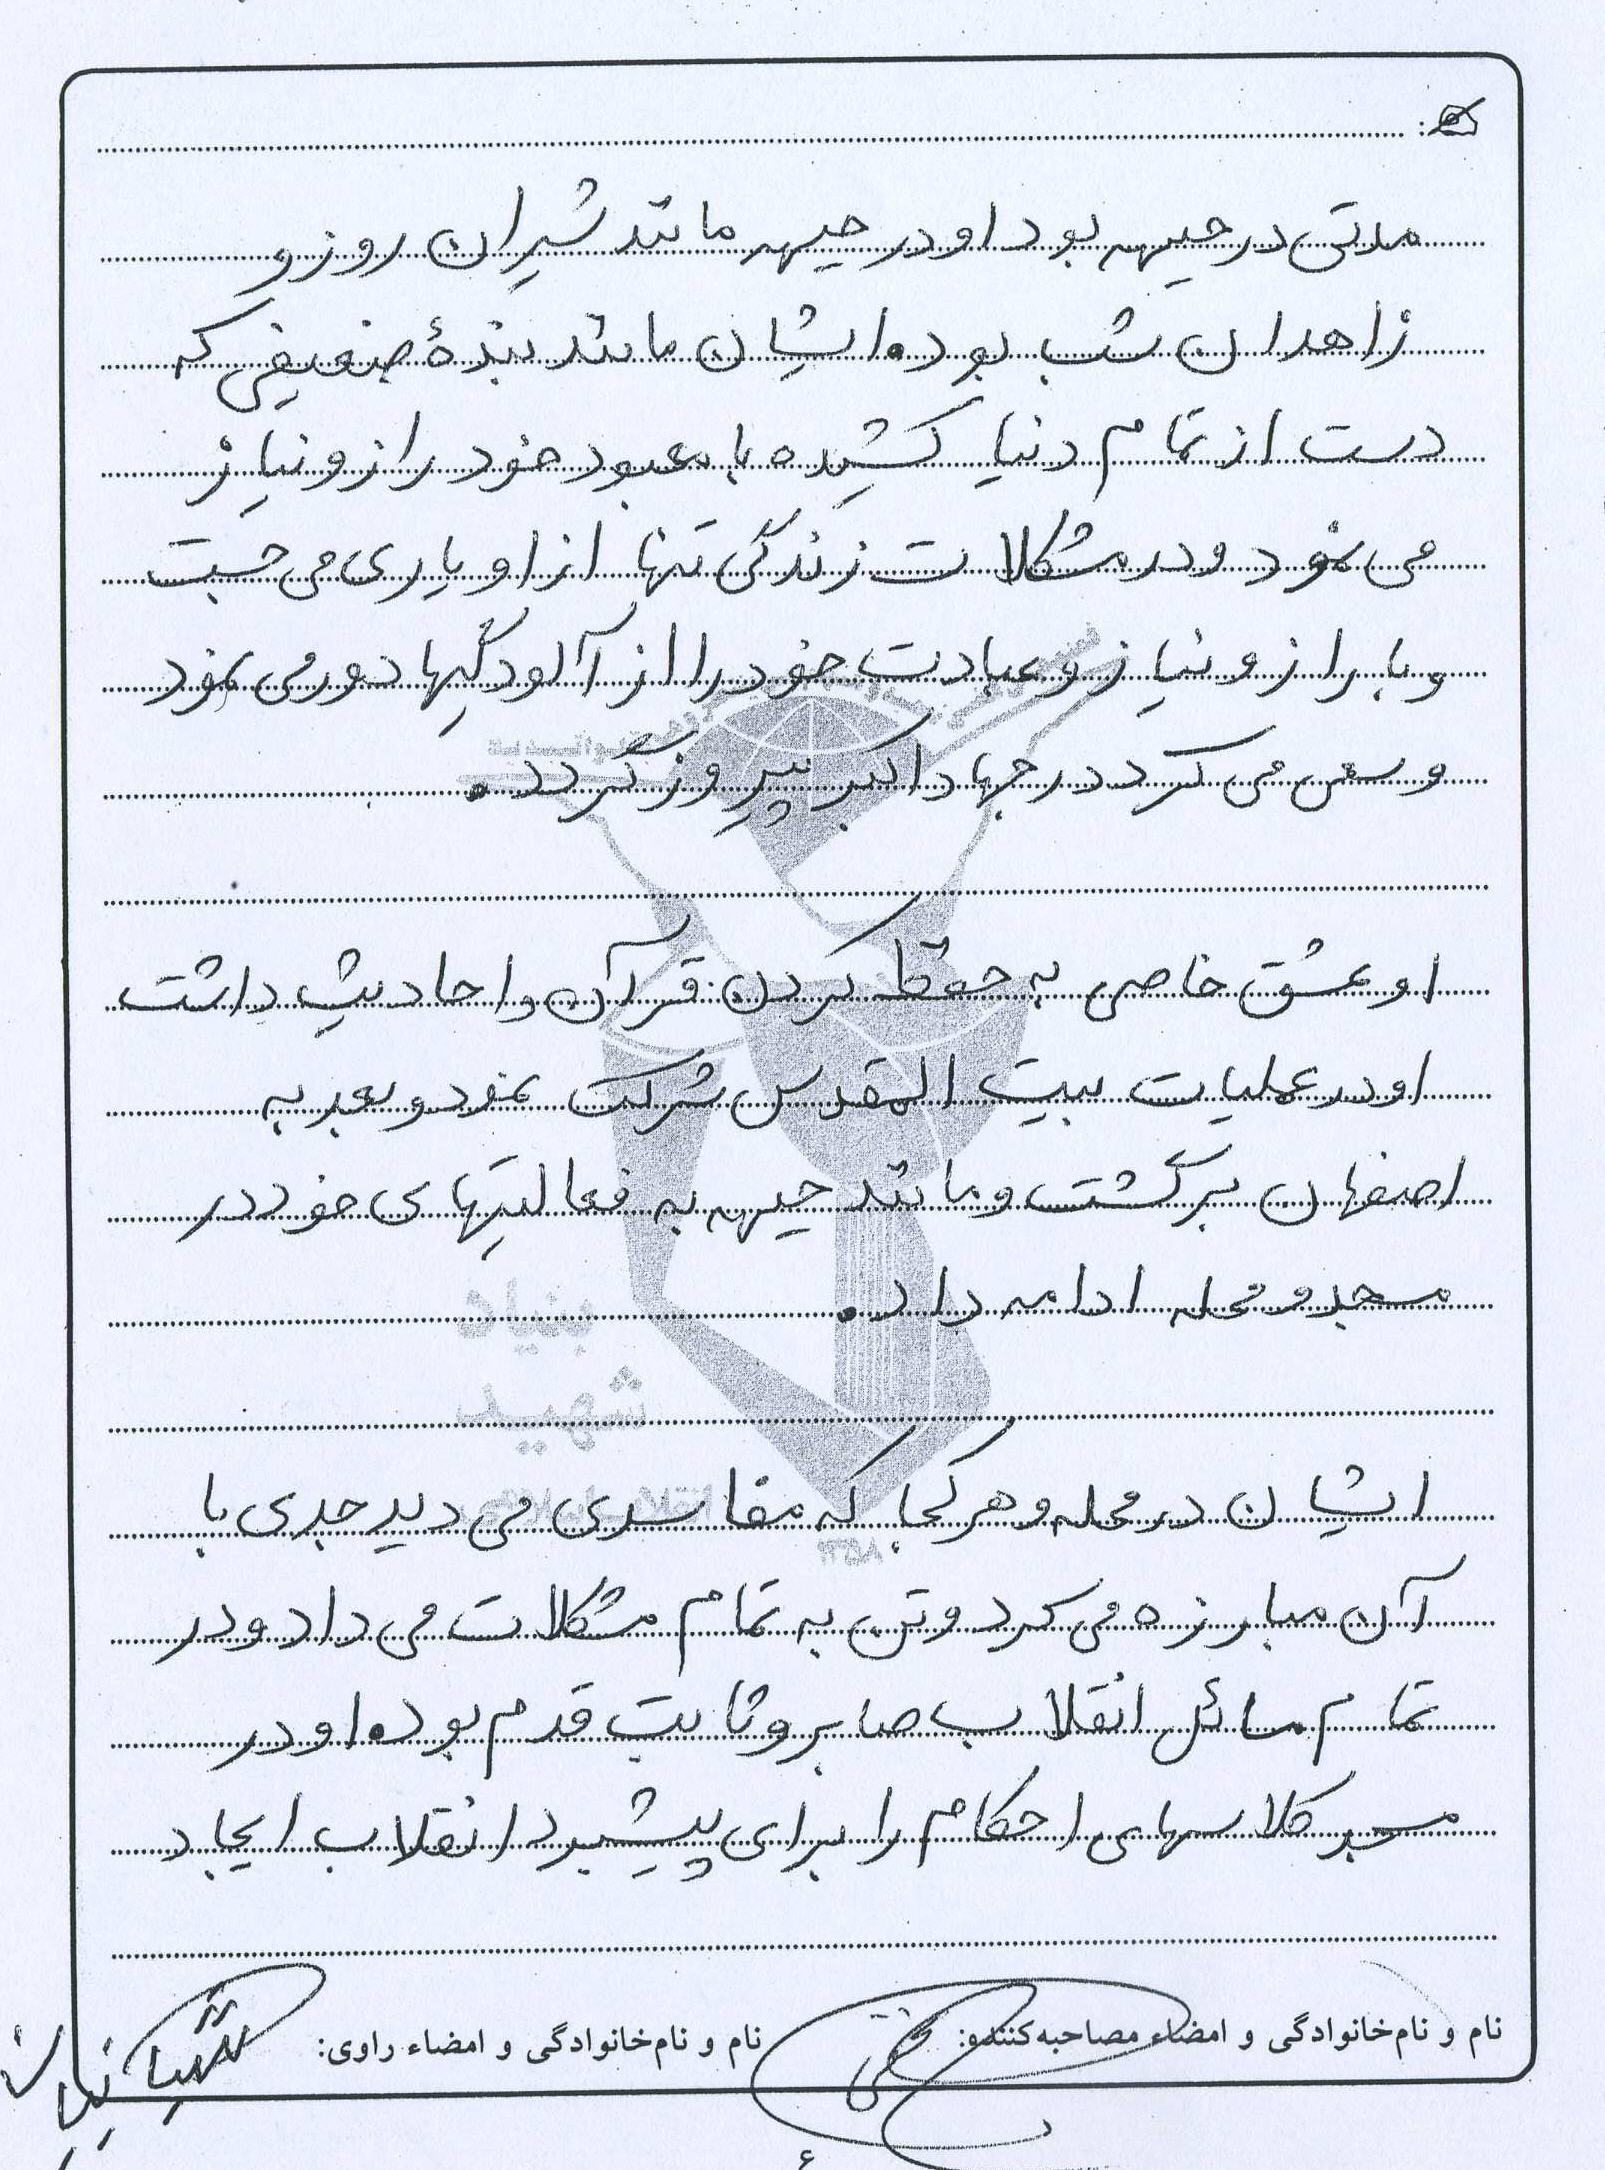 مدتی در جبهه بود او در جبهه مانند شیران روز و
زاهدان شب بود. ایشان مانند بندهٔ ضعیفی که
دست از تمام دنیا کشیده با معبود خود راز و نیاز
می نمود و در مشکلات زندگی تنها از او یاری می جست
و با راز و نیاز و عبادت خود را از آلودگیها دور می نمود
و سعی می کرد در جهاد اکبر پیروز گردد.
او عشق خاصی به حفظ کردن قرآن و احادیث داشت
او در عملیات بیت المقدس شرکت نمود و بعد به
اصفهان برگشت و مانند جبهه به فعالیتهای خود در
مسجد و محله ادامه داد.
بنیاد
شهید
ایشان در محله و هر کجا که مفاسدی می دید جدی با
آن مبارزه می کرد و تن به تمام مشکلات می داد و در
تمام مسائل انقلاب صابر و ثابت قدم بود. او در
مسجد کلاسهای احکام را برای پیشبرد انقلاب ایجاد
نام و نام‌خانوادگی و امضاء مصاحبه‌کننده:
نام و نام‌خانوادگی و امضاء راوی: